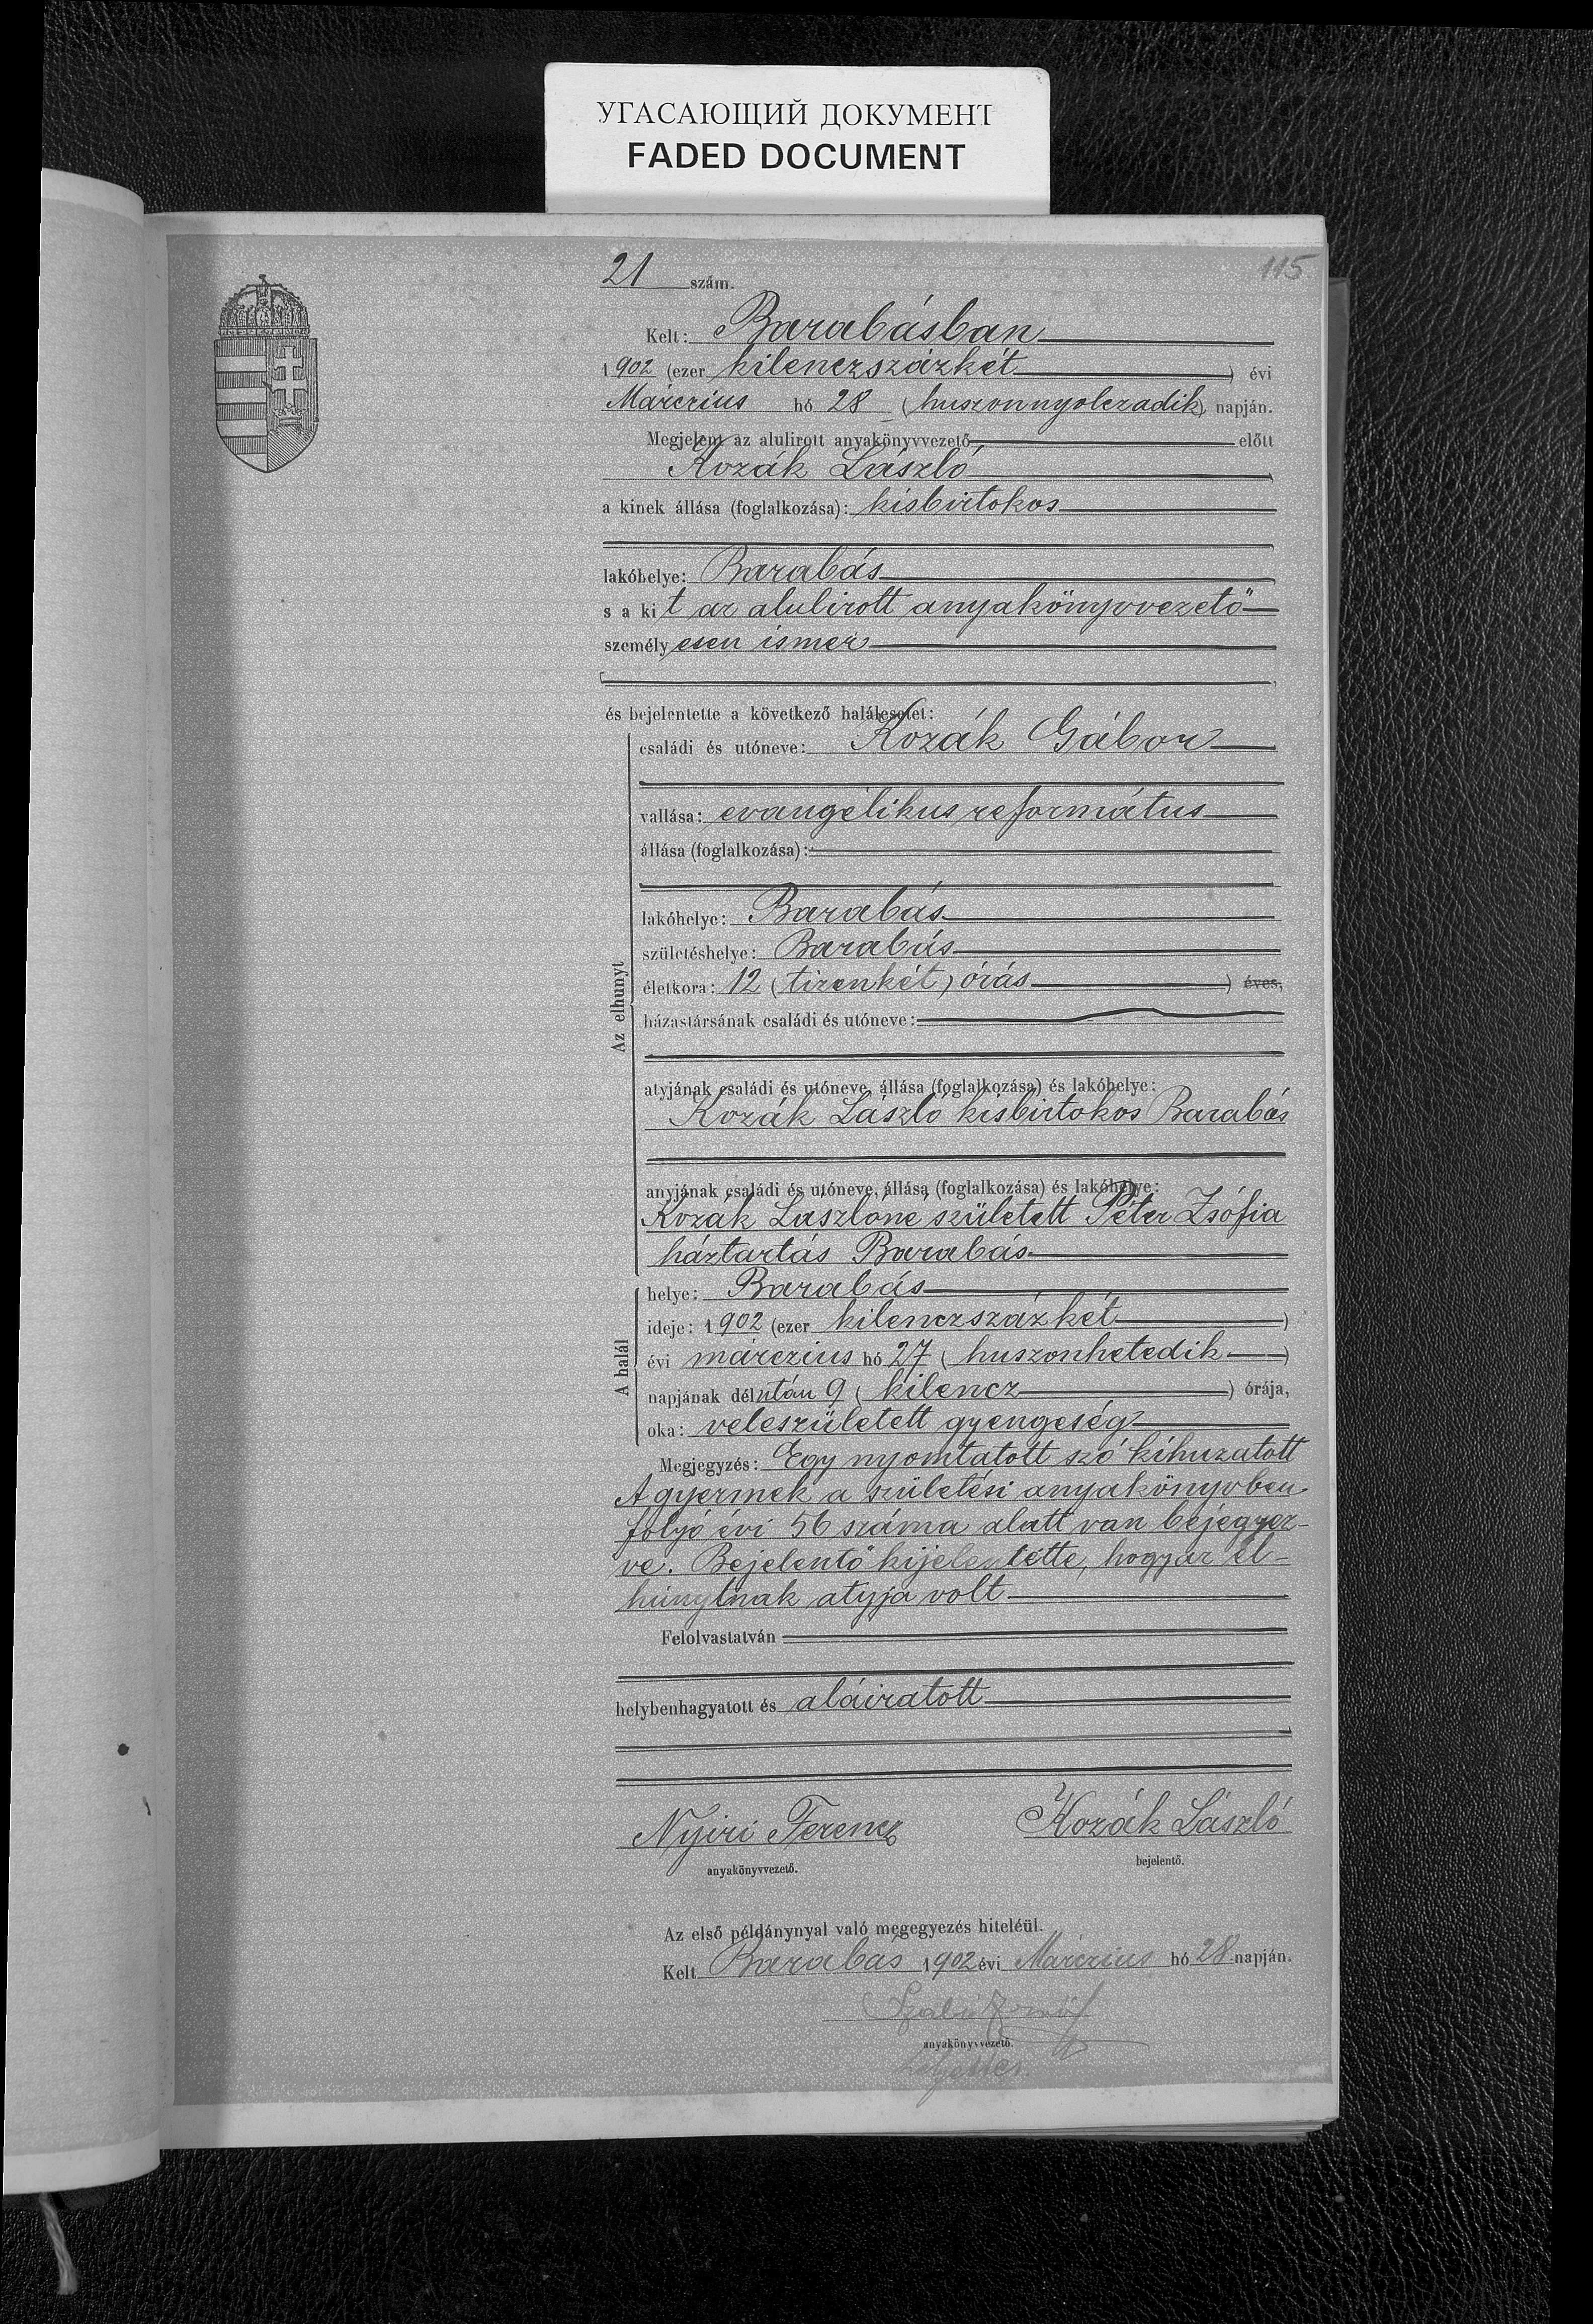 УГАСАЮЩИЙ ДОКУМЕНТ
FADED DOCUMENT
115
21 szám.
Kelt: Barabásban
1902 (ezer kilenczszázkét) évi
Márczius hó 28 (huszonnyolczadik) napján.
Megjelent az alulirott anyakönyvvezető előtt
Kozák László
a kinek állása (foglalkozása): kisbirtokos
lakóhelye: Barabás
s a kit az alulirott anyakönyvvezető
személyesen ismer
és bejelentette a következő halálesetet:
Az elhunyt
családi és utóneve: Kozák Gábor
vallása: evangélikus református
állása (foglalkozása):
lakóhelye: Barabás
születéshelye: Barabás
életkora: 12 (tizenkét) órás) éves,
házastársának családi és utóneve:
atyjának családi és utóneve, állása (foglalkozása) és lakóhelye:
Kozák László kisbirtokos Barabás
anyjának családi és utóneve, állása (foglalkozása) és lakóhelye:
Kozák Lászlóné született Péter Zsófia
háztartás Barabás
A halál
helye: Barabás
ideje: 1902 (ezer kilenczszázkét)
évi márczius hó 27 (huszonhetedik)
napjának délután 9 (kilencz) órája,
oka: veleszületett gyengeség
Megjegyzés: Egy nyomtatott szó kihuzatott
A gyermek a születési anyakönyvben
folyó évi 56 száma alatt van bejegyez-
ve. Bejelentő kijelentette, hogy az el-
húnytnak atyja volt
Felolvastatván
helybenhagyatott és aláiratott
Nyiri Ferencz Kozák László
anyakönyvvezető. bejelentő.
Az első példánynyal való megegyezés hiteléül.
Kelt Barabás 1902 évi Márczius hó 28 napján.
Szabó
anyakönyvvezető.